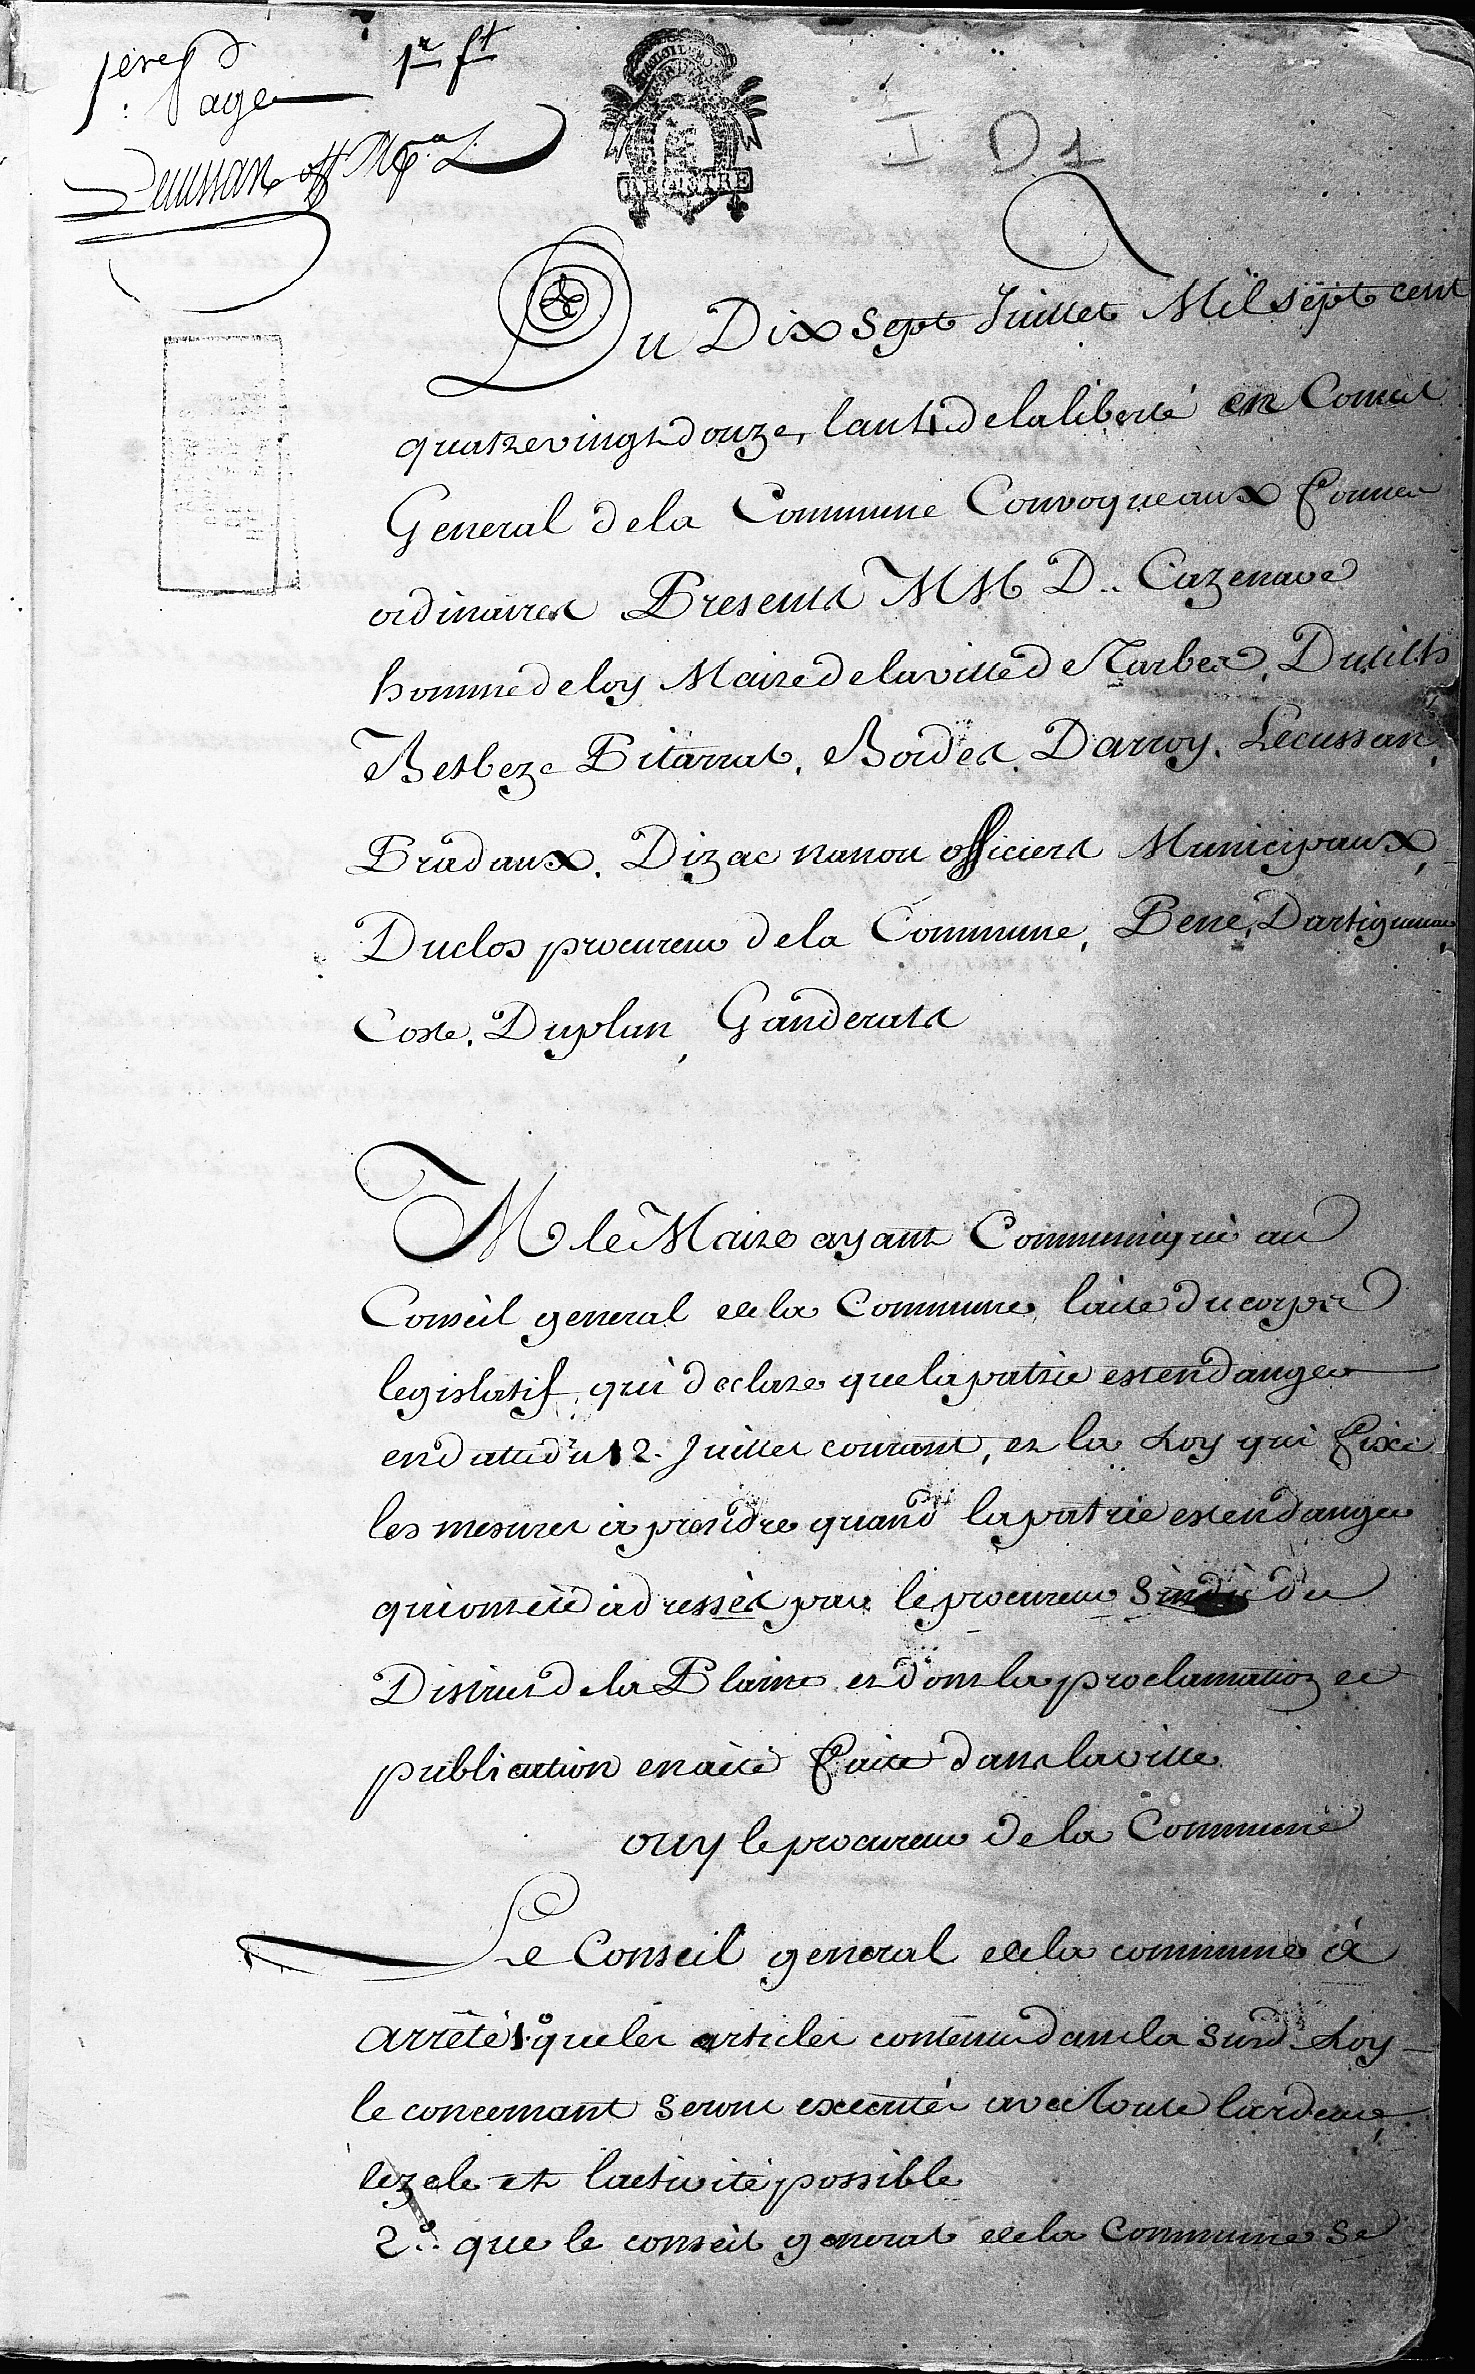 1ere Page
1r ft
Lecussan off Mpal
REGISTRE
I D 1
Du Dix Sept Juillet Mil sept cent
quatrevingt douze, lan 4 de la liberté en Conseil
General de la Commune Convoqué aux formes
ordinaires Presents MM D.. Cazenave
homme de loy Maire de la ville de Tarbes, Dutilh
Betbeze Pitarrat, Bordes, Darroy, Lecussan,
Pradaux, Dizac nanou officiers Municipaux,
Duclos procureur de la Commune, Pene, Dartiguenave
Coste, Duplan, Ganderats
M le Maire ayant Communiqué au
Conseil general de la Commune, l'acte du corps
legislatif, qui declare que la patrie est en danger
en datte du 12. Juillet courant, et la Loy qui fixe
les mesures à prendre quand la patrie est en danger
qui ont été adressés par le procureur Sindic du
District de la Plaine et dont la proclamation et
publication en a été faite dans la ville
ouy le procureur de la Commune
Le Conseil general de la commune à
arrêté 1º que les articles contenus dans la susd Loy
le concernant seront executés avec toute l'ardeur,
le zele et l'activité possible
2º. que le conseil general de la Commune se